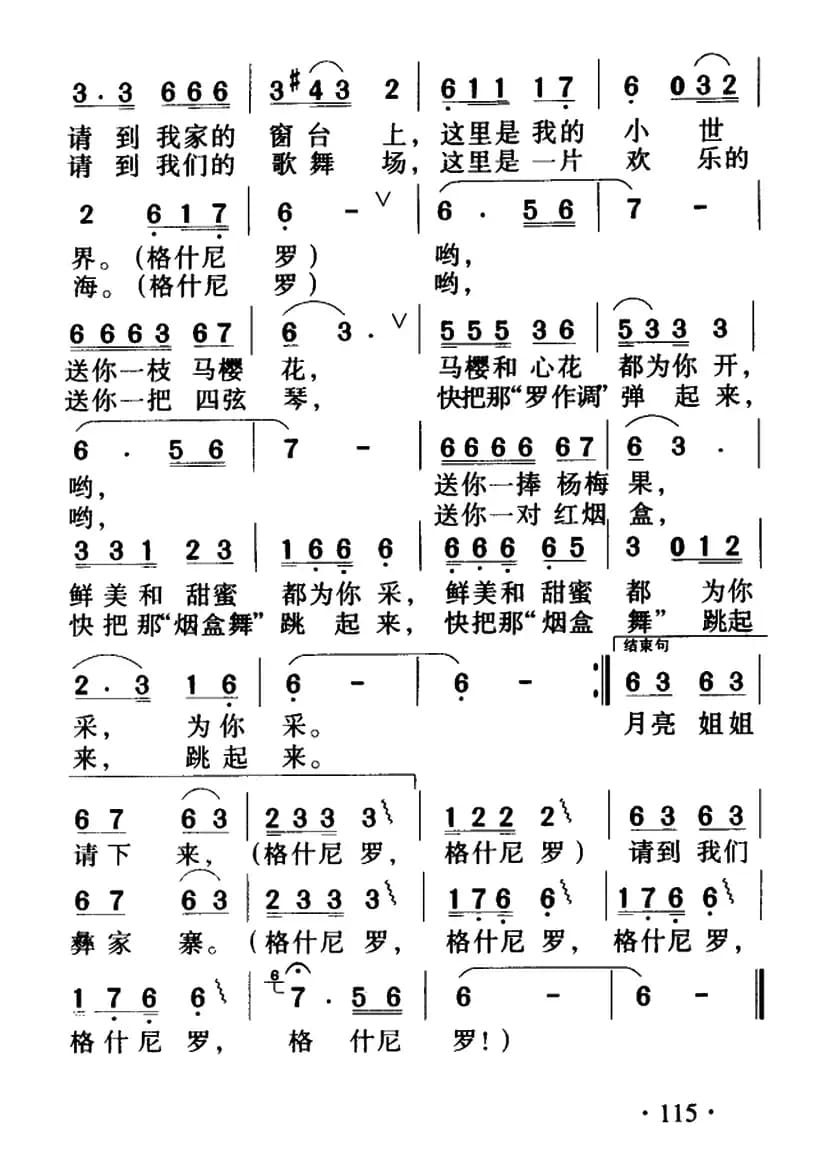 3·3 666 | 3#43 2 | 611 17 | 6 032 |
请到 我家的 窗台 上, 这里是 我的 小 世
请到 我们的 歌舞 场, 这里是 一片 欢 乐的
2 617 | 6 - ∨ | 6 · 56 | 7 - |
界。(格什尼 罗) 哟,
海。(格什尼 罗) 哟,
6663 67 | 6 3 · ∨ | 555 36 | 533 3 |
送你一枝 马樱 花, 马樱和 心花 都为你 开,
送你一把 四弦 琴, 快把那“罗作调” 弹起来,
6 · 56 | 7 - | 6666 67 | 6 3 · |
哟, 送你一捧 杨梅 果,
哟, 送你一对 红烟 盒,
331 23 | 166 6 | 666 65 | 3 012 |
鲜美和 甜蜜 都为你 采, 鲜美和 甜蜜 都 为你
快把那“烟盒舞” 跳起来, 快把那“烟盒 舞” 跳起
结束句
2·3 16 | 6 - | 6 - :‖ 63 63 |
采, 为你 采。 月亮 姐姐
来, 跳起 来。
67 63 | 233 3 | 122 2 | 63 63 |
请下 来, (格什尼 罗, 格什尼 罗) 请到 我们
67 63 | 233 3 | 176 6 | 176 6 |
彝家 寨。(格什尼 罗, 格什尼 罗, 格什尼 罗,
176 6 | 6 7 · 56 | 6 - | 6 - ‖
格什尼 罗, 格 什尼 罗!)
·115·